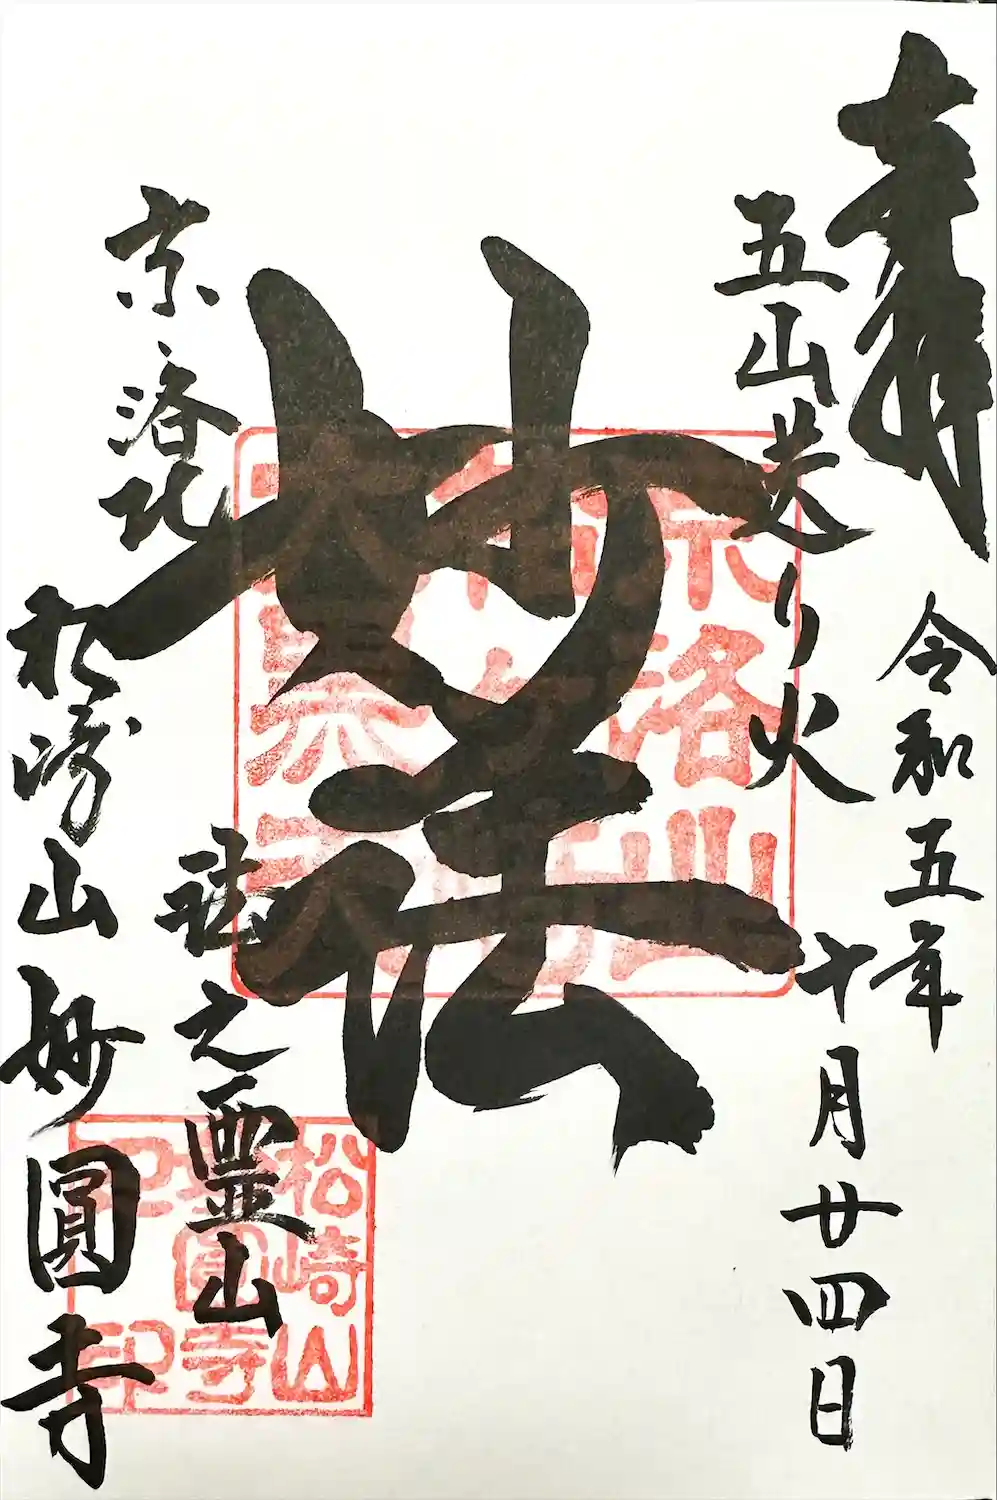 奉拝
五山送り火
令和五年
十月廿四日
妙法
京洛北
法之霊山
松崎山妙圓寺
松崎山
妙圓寺
之印